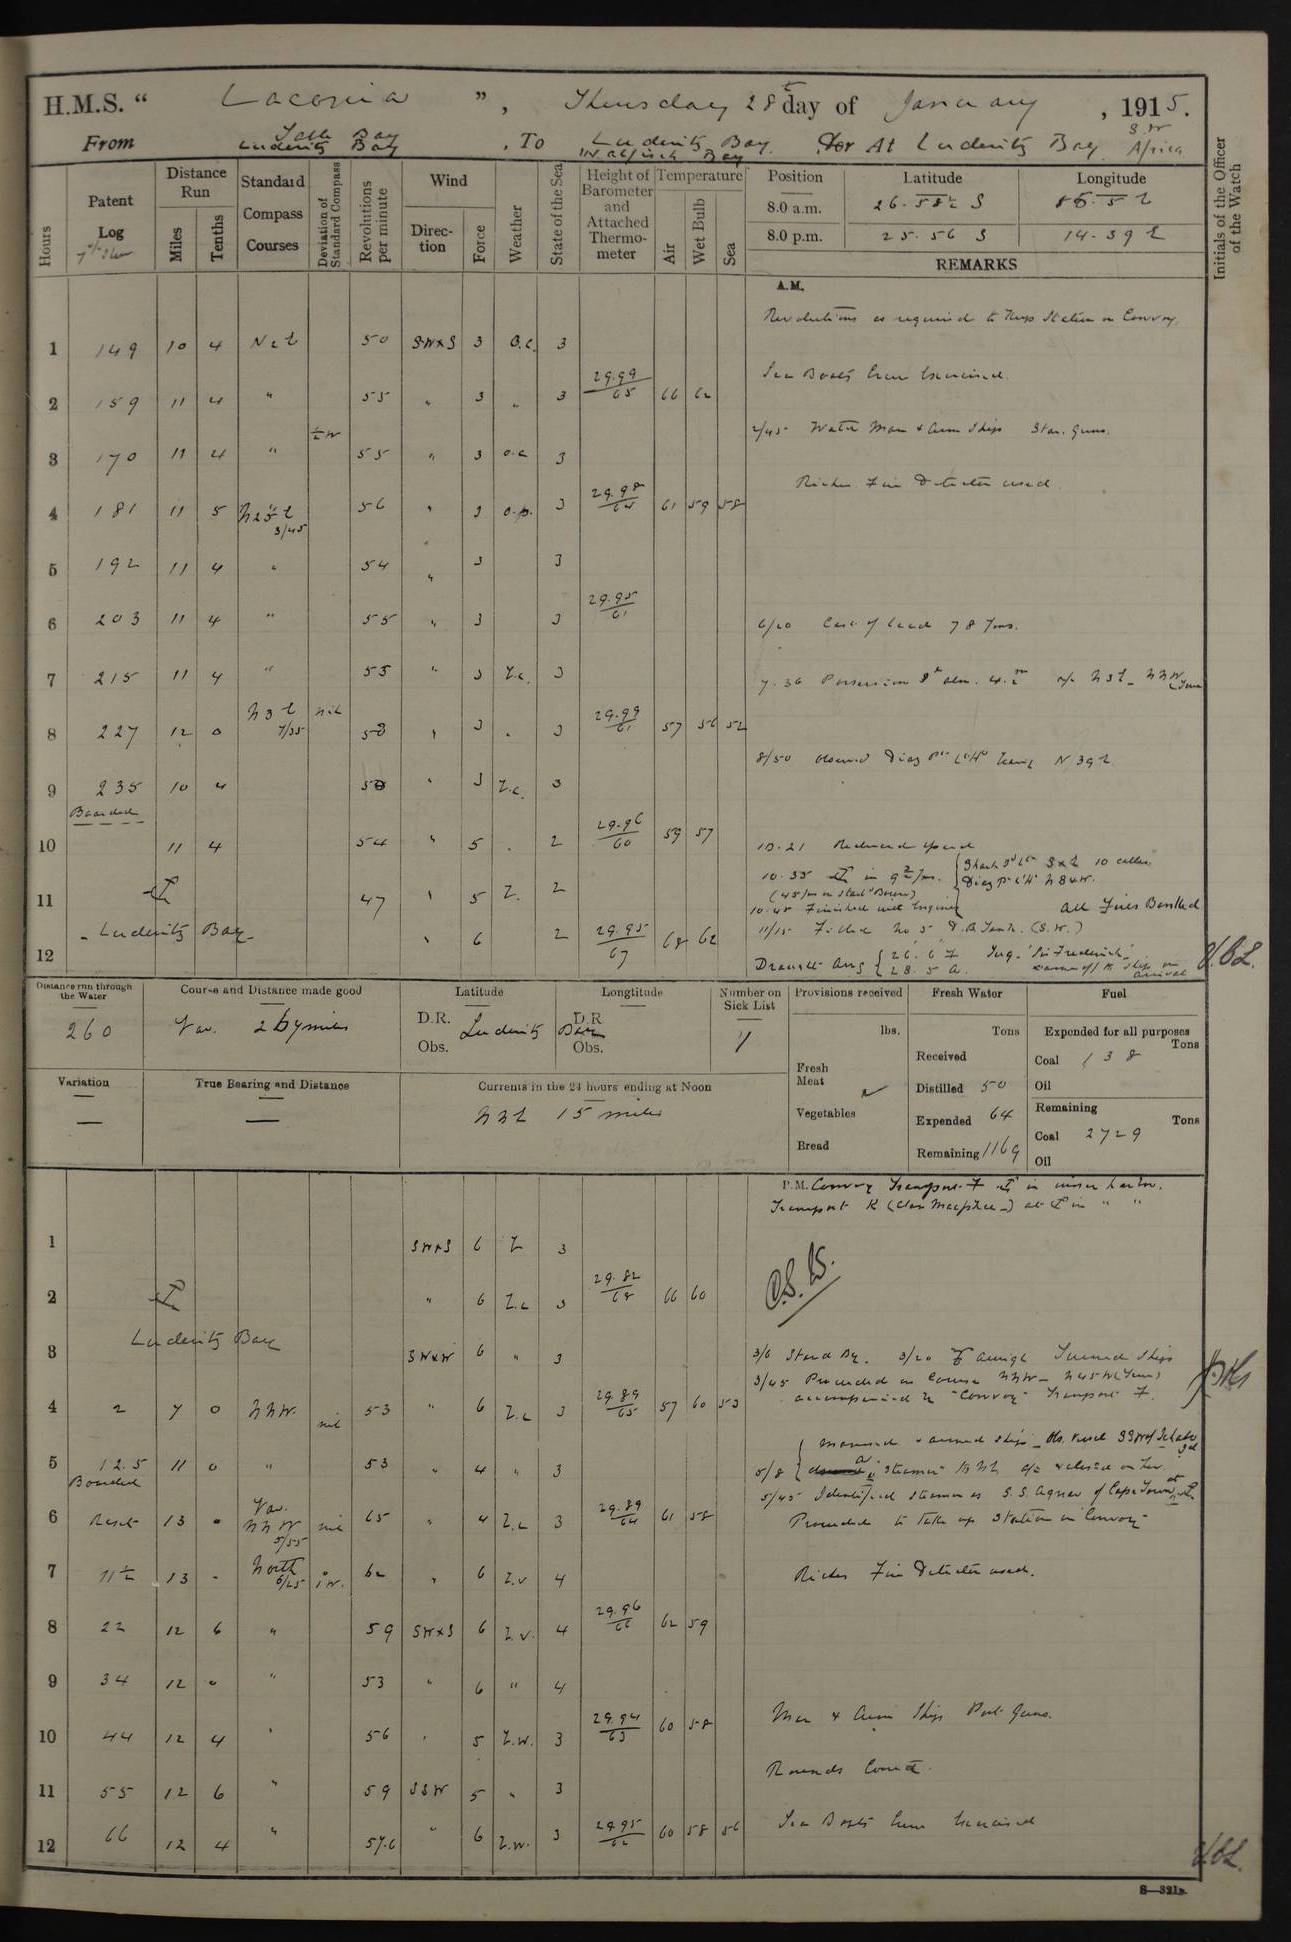 H.M.S. “ Laconia ”, Thursday 28th day of January, 1915.
From Table Bay, To Luderitz Bay or At Luderitz Bay S.W. Africa
Luderitz Bay Walfisch Bay
Hours
Patent Log
Distance Run
Miles
Tenths
Standard Compass Courses
Deviation of Standard Compass
Revolutions per minute
Wind
Direction
Force
Weather
State of the Sea
Height of Barometer and Attached Thermometer
Temperature
Air
Wet Bulb
Sea
Position Latitude Longitude
8.0 a.m. 26.58½ S
8.0 p.m. 25.56 S 14.39 E
REMARKS
Initials of the Officer of the Watch
A.M.
Revolutions as required to Keep Station on Convoy.
1 149 10 4 N 2 E 50 SWxS 3 o.c. 3
Sea Boats Crew Exercised.
2 159 11 4 " 55 " 3 " 3 29.99/65 66 62
½ W
2/45 Watch Man & Arm Ships Star. Guns.
3 170 11 4 " 55 " 3 o.c 3
Riches Fire Detector used.
4 181 11 5 3/45 56 " 3 o.p. 3 29.98/64 61 59 58
5 192 11 4 " 54 " 3 3
6 203 11 4 " 55 " 3 3 29.95/61
6/20 Cast of lead 78 fms.
7 215 11 4 " 55 " 3 Z.c. 3
7.36 Possession Id abm. 4.
8 227 12 0 N 3 E 7/35 nil 53 " 3 " 3 29.99/61 57 56 52
8/50 observed Diaz Pt Lt Ho bearing N 39 E.
9 235 10 4 50 " 3 Z.c. 3
Boarded
10 11 4 54 " 5 . 2 29.96/60 59 57
10.21 Reduced speed
10.35 in 9½ fms. Shark Id Lt SxE 10 cables.
Diaz Pt Lt Ho N84W.
11 47 " 5 Z. 2
10.45 Finished with Engines All Fires Banked
11/15 Filled No 5 D.B. Tank. (S.W.)
12 Luderitz Bay " 6 2 29.95/67 68 62
Draught Aug 26. 6 F Tug. 'Sir Frederick'
28. 5 A. came off to ship on arrival
Distance run through the Water
260
Course and Distance made good
Var. miles
Latitude
D.R.
Obs.
Longtitude
D.R
Obs.
Luderitz Bay
Number on Sick List
Provisions received
lbs.
Fresh Meat
Vegetables
Bread
Fresh Water
Tons
Received
Distilled 50
Expended 64
Remaining 1169
Fuel
Expended for all purposes
Tons
Coal 138
Oil
Remaining
Tons
Coal 2729
Oil
Variation
—
True Bearing and Distance
—
Currents in the 24 hours ending at Noon
NNE 15 miles
P.M. Convoy Transport F in inner harbor.
Transport K (Clan Macphee) at in " "
1 SWxS 6 Z 3
2 " 6 Z.c 3 29.82/68 66 60
Luderitz Bay
3 SWxW 6 " 3
3/6 Stand By. 3/20 aweigh Turned Ships
3/45 Proceeded on Course NNW - N45W (True)
accompanied by "Convoy" Transport F.
4 2 7 0 NNW. nil 53 " 6 Z.c 3 29.89/65 57 60 53
Manned & armed ships
5 12.5 11 0 " 53 " 4 " 3
Boarded
5/8 a steamer
5/45 Identified steamer as S.S. Agnar of Cape Town
6 Reset 13 - Var. NNW 5/55 nil 65 " 4 Z.c 3 29.89/64 61 58
Proceeded to take up Station on Convoy
7 11½ 13 - North 6/25 62 " 6 Z.v 4
Riches Fire Detector used.
8 22 12 6 " 59 SWxS 6 Z.v. 4 29.96/66 62 59
9 34 12 0 " 53 " 6 " 4
10 44 12 4 " 56 " 5 Z.w. 3 29.94/63 60 58
Man & Arm Ships Port Guns.
11 55 12 6 " 59 SSW 5 " 3
Rounds Correct.
12 66 12 4 " 57.6 " 6 Z.w. 3 29.95/62 60 58 56
Sea Boats Crew Exercised
S—321B.